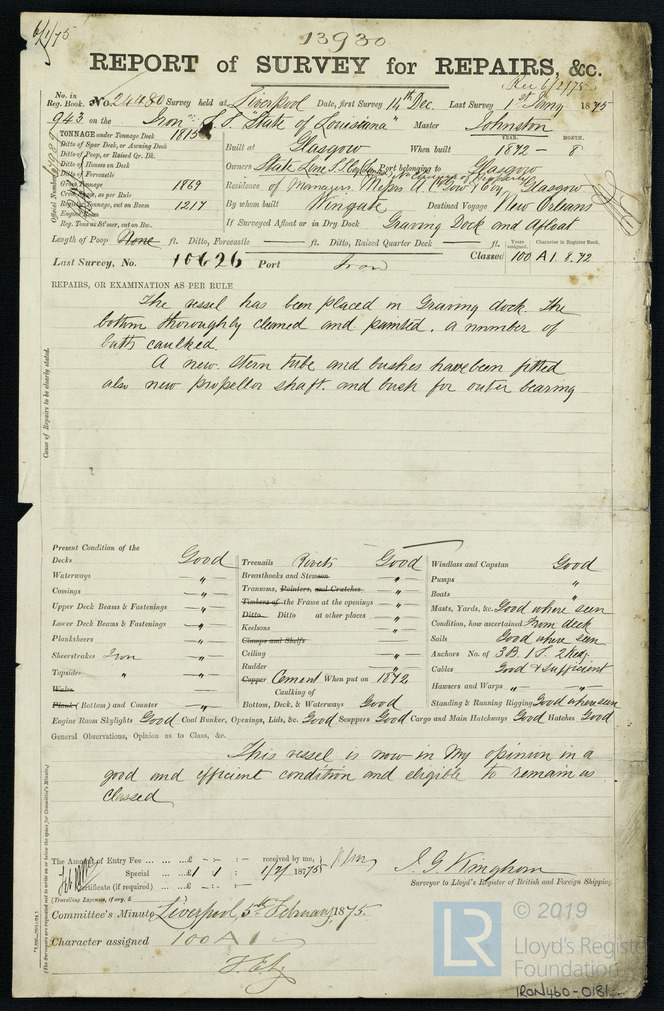 6/1/75
13930
REPORT of SURVEY for REPAIRS, &c.
Rec 6/2/75
No. in Reg. Book. No. 24480 Survey held at Liverpool Date, first Survey 14th Dec. Last Survey 1st Jany 1875
943 on the Iron S.S. "State of Louisiana" Master Johnston
TONNAGE under Tonnage Deck 1815
Ditto of Spar Deck, or Awning Deck
Ditto of Poop, or Raised Qr. Dk.
Ditto of Houses on Deck
Ditto of Forecastle
Gross Tonnage 1869
Crew Space, as per Rule
Register Tonnage, cut on Beam 1217
Engine Room
Reg. Tons as St'mer, cut on Bm.
Official Number
YEAR. MONTH.
Built at Glasgow When built 1872 - 8
Owners State Line S.S. Port belonging to Glasgow
Residence of Managers. Messrs A. Glasgow
By whom built Wingate Destined Voyage New Orleans
If Surveyed Afloat or in Dry Dock Graving Dock and afloat
Length of Poop None ft. Ditto, Forecastle — ft. Ditto, Raised Quarter Deck — ft.
Years assigned. Character in Register Book.
Last Survey, No. 10626 Port Iron Classed 100 A1. 8.72
REPAIRS, OR EXAMINATION AS PER RULE
The vessel has been placed in Graving dock. The
bottom thoroughly cleaned and painted. a number of
butts caulked.
A new Stern tube and bushes have been fitted
also new propellor shaft. and bush for outer bearing
Cause of Repairs to be clearly stated.
Present Condition of the
Decks Good
Waterways — " —
Comings — " —
Upper Deck Beams & Fastenings — " —
Lower Deck Beams & Fastenings — " —
Planksheers — " —
Sheerstrakes Iron — " —
Topsides " — " —
Wales
Plank (Bottom) and Counter — " —
Treenails Rivets Good
Breasthooks and Stemson "
Transoms, Pointers, and Crutches "
Timbers of the Frame at the openings "
Ditto Ditto at other places "
Keelsons "
Clamps and Shelfs
Ceiling "
Rudder "
Copper Cement When put on 1872
Caulking of
Bottom, Deck, & Waterways Good
Windlass and Capstan Good
Pumps "
Boats "
Masts, Yards, &c. Good where seen
Condition, how ascertained From deck
Sails Good where seen
Anchors No. of 3 B. 1 S. 2 Kedg.
Cables Good & sufficient
Hawsers and Warps " "
Standing & Running Rigging Good where seen
Engine Room Skylights Good Coal Bunker, Openings, Lids, &c. Good Scuppers Good Cargo and Main Hatchways Good Hatches Good
General Observations, Opinion as to Class, &c.
This vessel is now in my opinion in a
good and efficient condition and eligible to remain as
classed
The Amount of Entry Fee ... ... £ - : - : - received by me,
Special ... ... £ 1 : 1 : 1/2/ 1875
Certificate (if required) ... £ - : - : -
(Travelling Expenses, if any, £
J. G. Kinghorn
Surveyor to Lloyd's Register of British and Foreign Shipping.
Committee's Minute Liverpool, 5th February 1875.
Character assigned 100 A 1
(The Surveyors are requested not to write on or below the space for Committee's Minute.)
LR © 2019
Lloyd's Register
Foundation
IRON460-0181